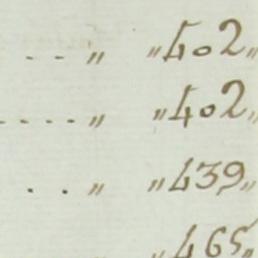 ---- „ „402„
----- „ „402„
. . „ „439„
„465„